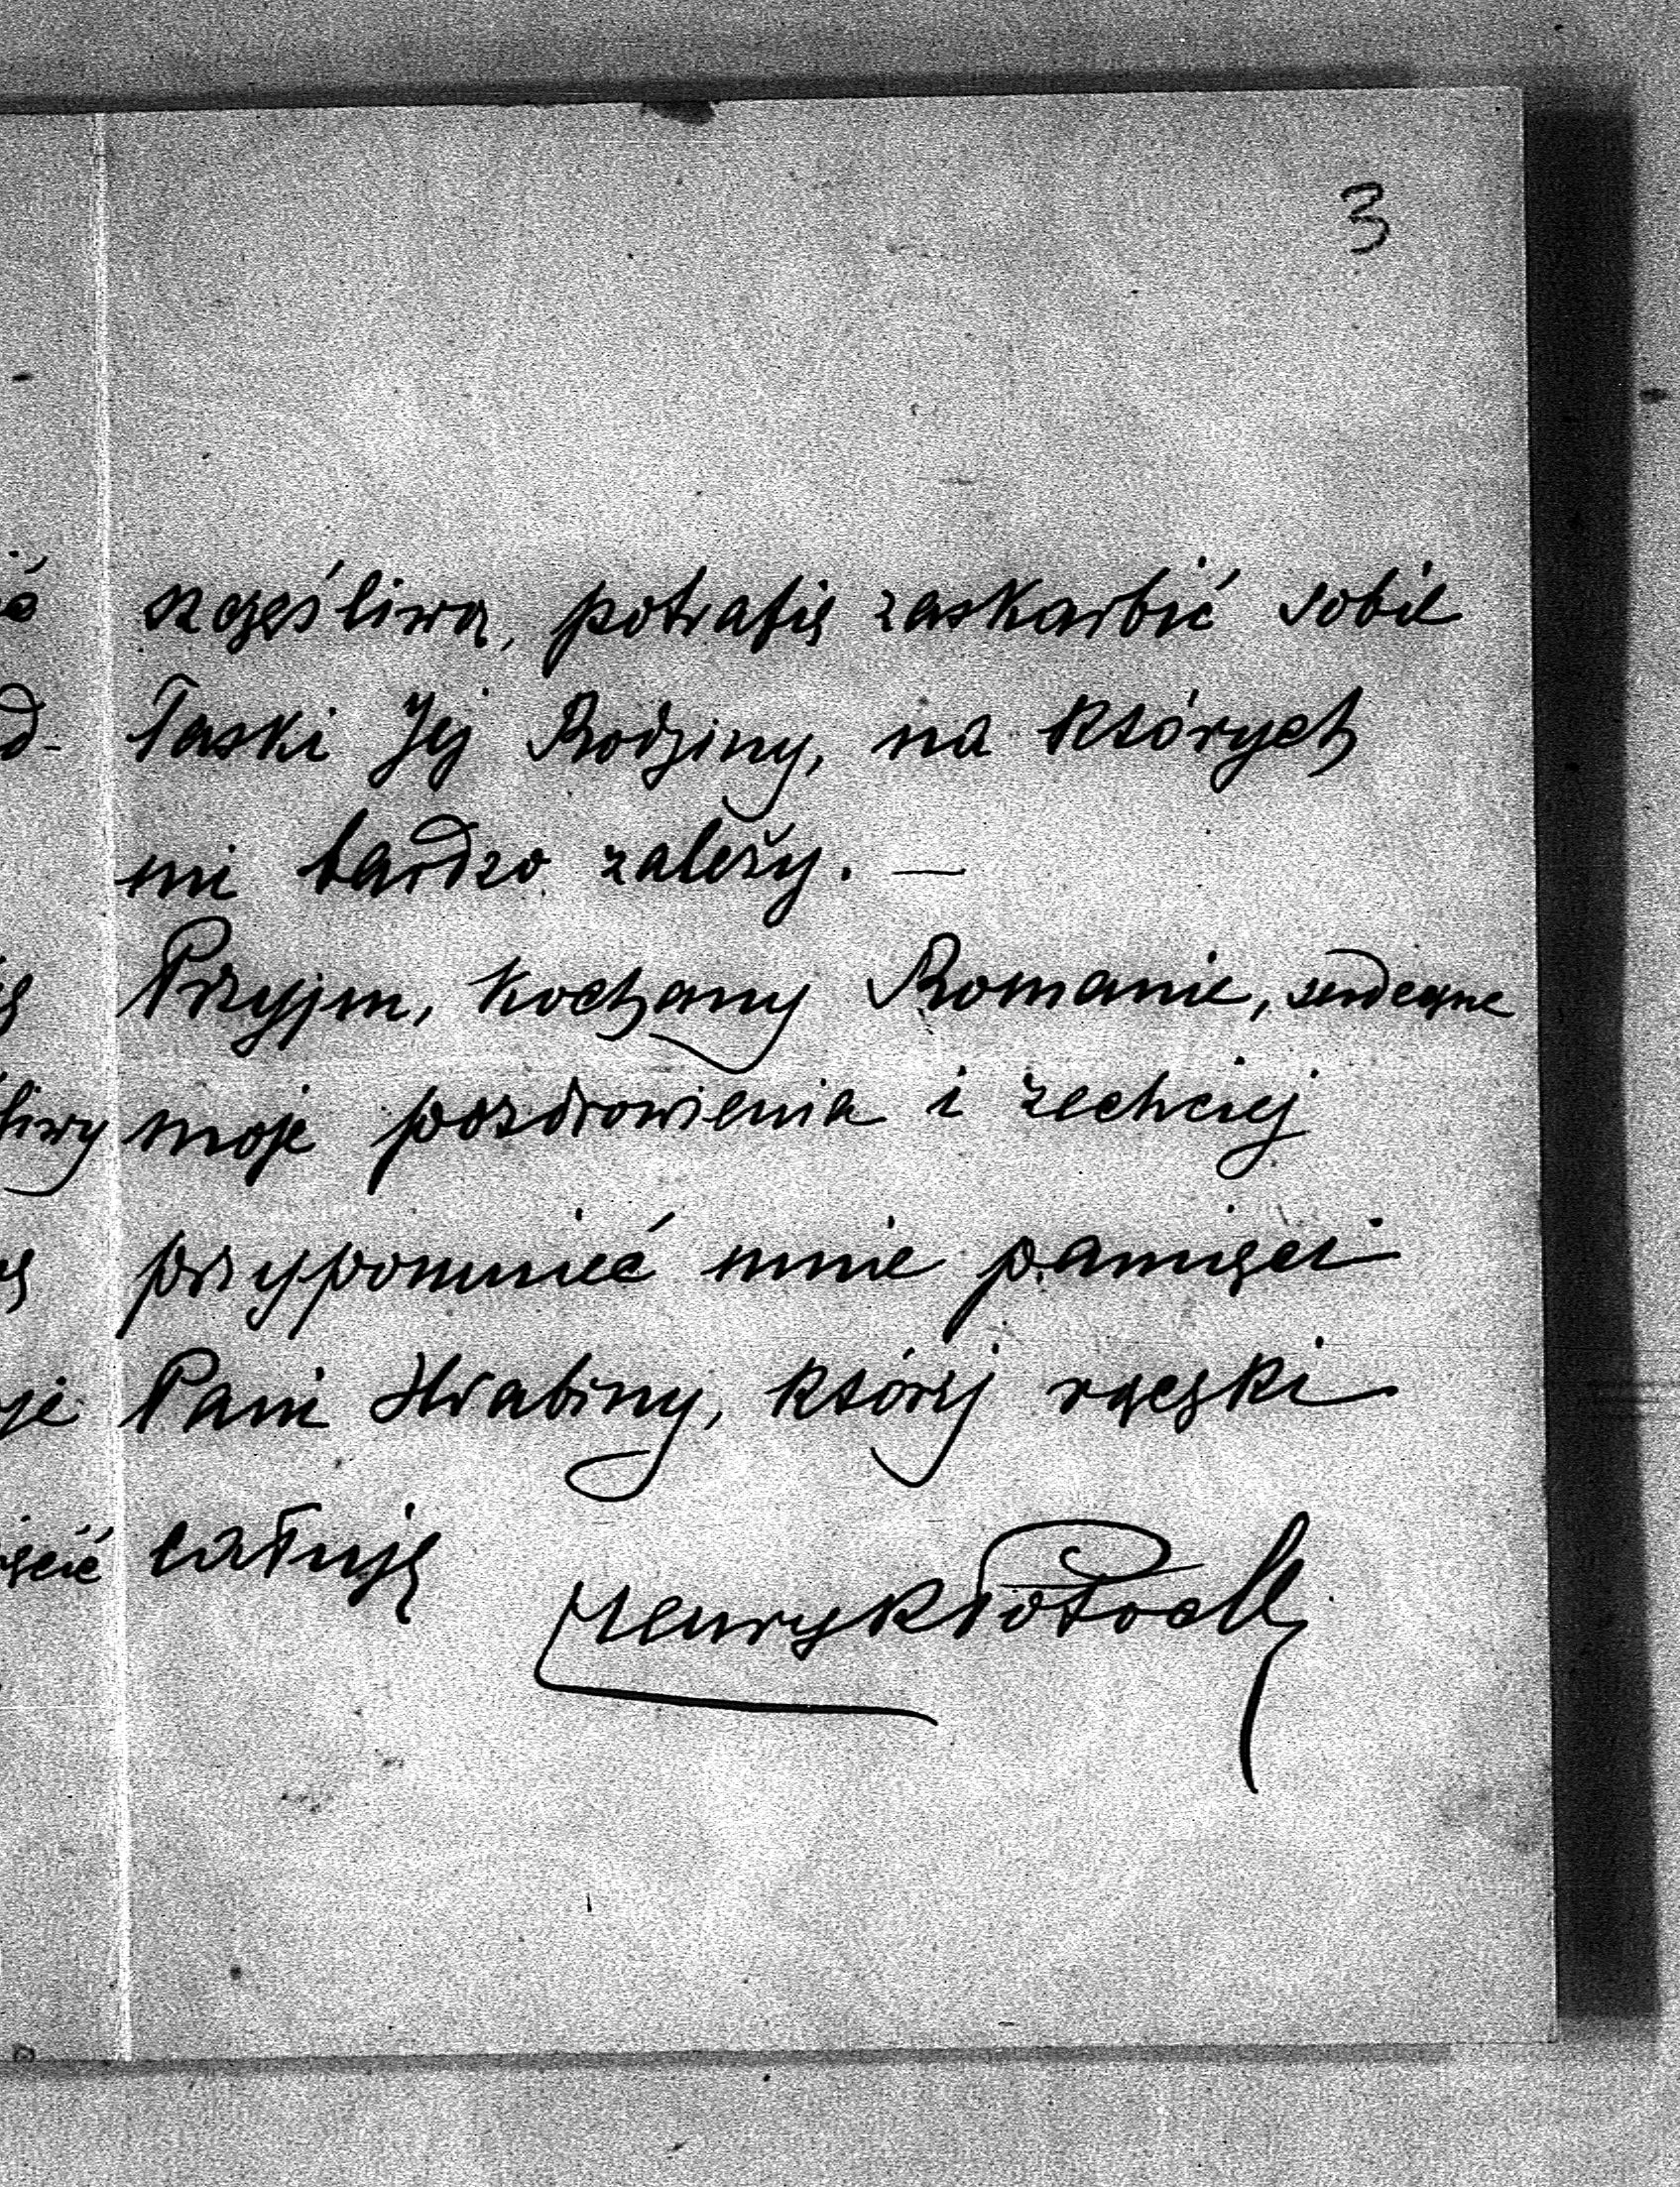 3
szczęśliwą, potrafię zaskarbić sobie
łaski Jej Rodziny, na których
mi bardzo zależy. —
Przyjm, kochany Romanie, serdeczne
moje pozdrowienia i zechciej
przypomnieć mnie pamięci
Pani Hrabiny, której rączki
całuję
Henryk Potocki